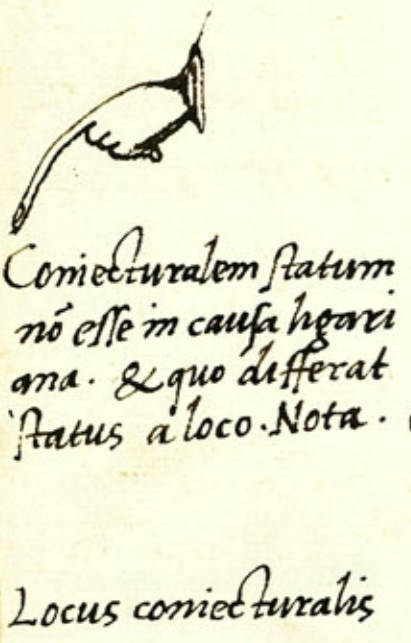 Coniecturalem statum
nō esse in causa ligari
ana. & quo differat
status a loco. Nota.
Locus coniecturalis